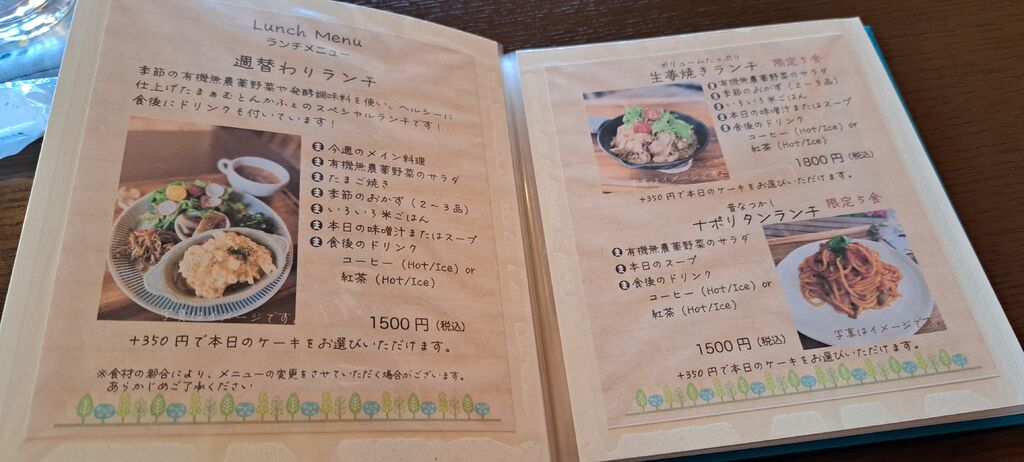 Lunch Menu
ランチメニュー
週替わりランチ
季節の有機無農薬野菜や発酵調味料を使い、ヘルシーに
仕上げたまぁむとんかふぇのスペシャルランチです！
食後にドリンクも付いています！
今週のメイン料理
有機無農薬野菜のサラダ
たまご焼き
季節のおかず（2～3品）
いろいろ米ごはん
本日の味噌汁またはスープ
食後のドリンク
コーヒー（Hot/Ice）or
紅茶（Hot/Ice）
1500円（税込）
+350円で本日のケーキをお選びいただけます。
※食材の都合により、メニューの変更をさせていただく場合がございます。
あらかじめご了承ください
ボリュームたっぷり
生姜焼きランチ 限定5食
有機無農薬野菜のサラダ
季節のおかず（2～3品）
いろいろ米ごはん
本日の味噌汁またはスープ
食後のドリンク
コーヒー（Hot/Ice）or
紅茶（Hot/Ice）
1800円（税込）
+350円で本日のケーキをお選びいただけます。
昔なつかし
ナポリタンランチ 限定5食
有機無農薬野菜のサラダ
本日のスープ
食後のドリンク
コーヒー（Hot/Ice）or
紅茶（Hot/Ice）
写真はイメージです。
1500円（税込）
+350円で本日のケーキをお選びいただけます。